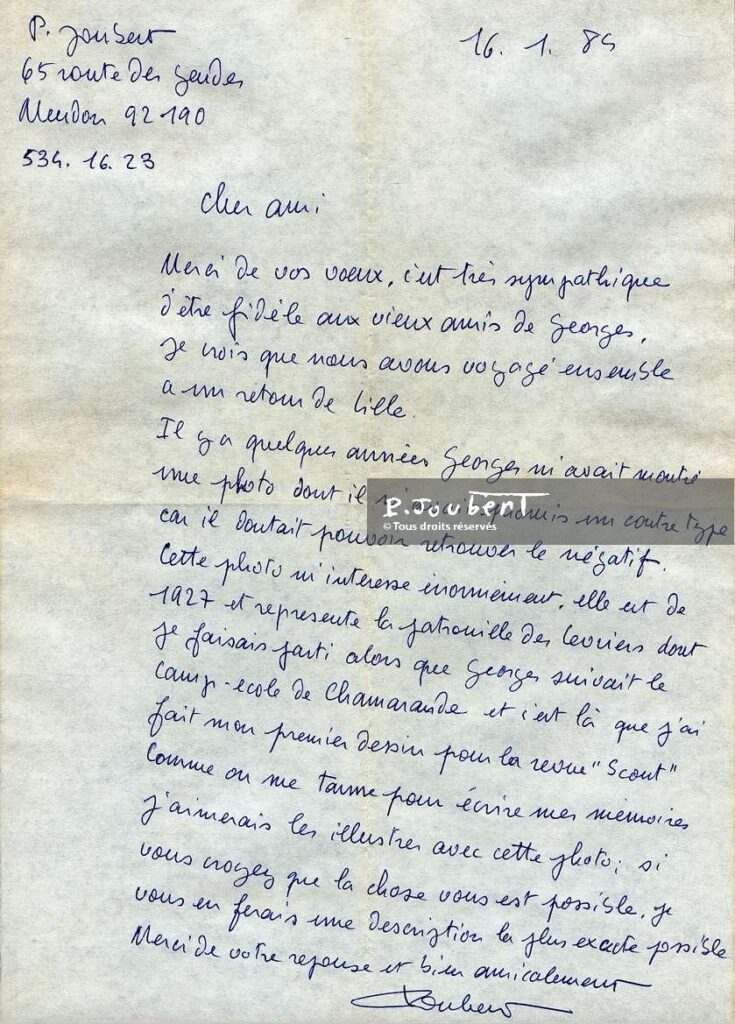 P. Joubert
16. 1. 85
65 route des gardes
Meudon 92 190
534. 16. 23
Cher ami
Merci de vos voeux, c'est très sympathique
d'être fidèle aux vieux amis de Georges.
Je crois que nous avons voyagé ensemble
a un retour de Lille.
Il y a quelques années Georges m'avait montré
une photo dont il promis un contre type
P. JOUBERT
© Tous droits réservés
car il doutait pouvoir retrouver le négatif.
Cette photo m'interesse énormément, elle est de
1927 et represente la patrouille des levriers dont
je faisais parti alors que Georges suivait le
camp-ecole de Chamarande et c'est là que j'ai
fait mon premier dessin pour la revue "Scout"
Comme on me tanne pour écrire mes mémoires
j'aimerais les illustrer avec cette photo; si
vous croyez que la chose vous est possible, je
vous en ferais une description la plus exacte possible
Merci de votre reponse et bien amicalement
Joubert